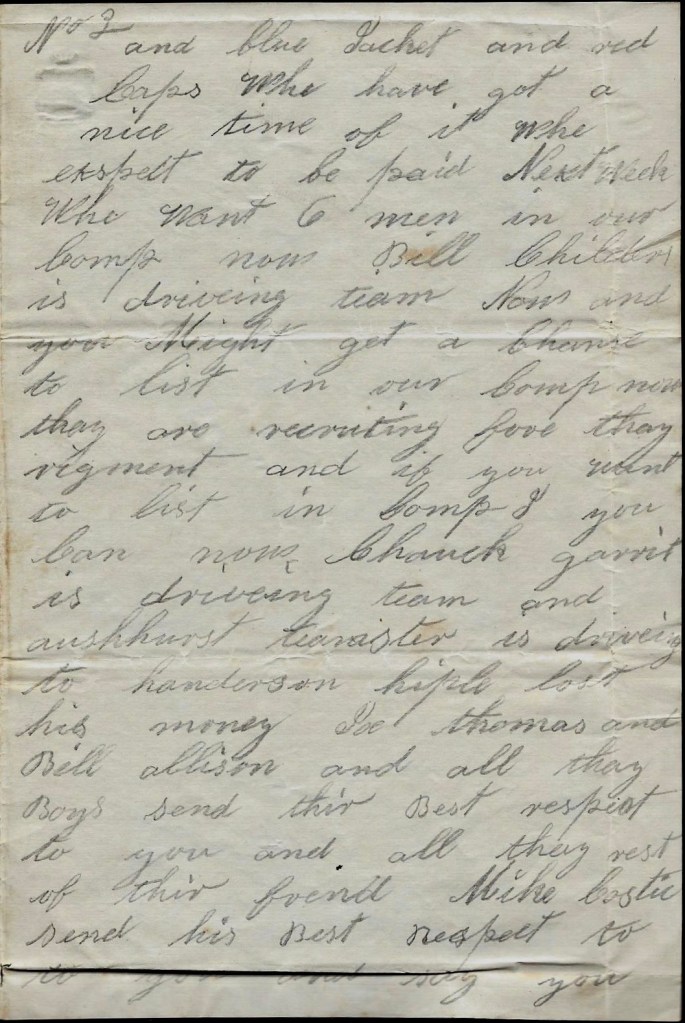 No 3 and blue Jacket and red
Caps Whe have got a
nice time of it Whe
exspect to be paid Next Week
Whe Want 6 men in our
Comp now Bill Childers
is driveing team Now and
you Might get a Chanse
to list in our Comp now
thay are recruiting fore thay
rigment and if you want
to list in Comp I you
Can now Chauck garrit
is driveing team and
aushhurst teamster is driveing
to handerson hiple lost
his money Joe thomas and
Bill allison and all thay
Boys send thir Best respect
to you and all thay rest
of thir frend Mike Costic
send his Best Respect to
to you and say you